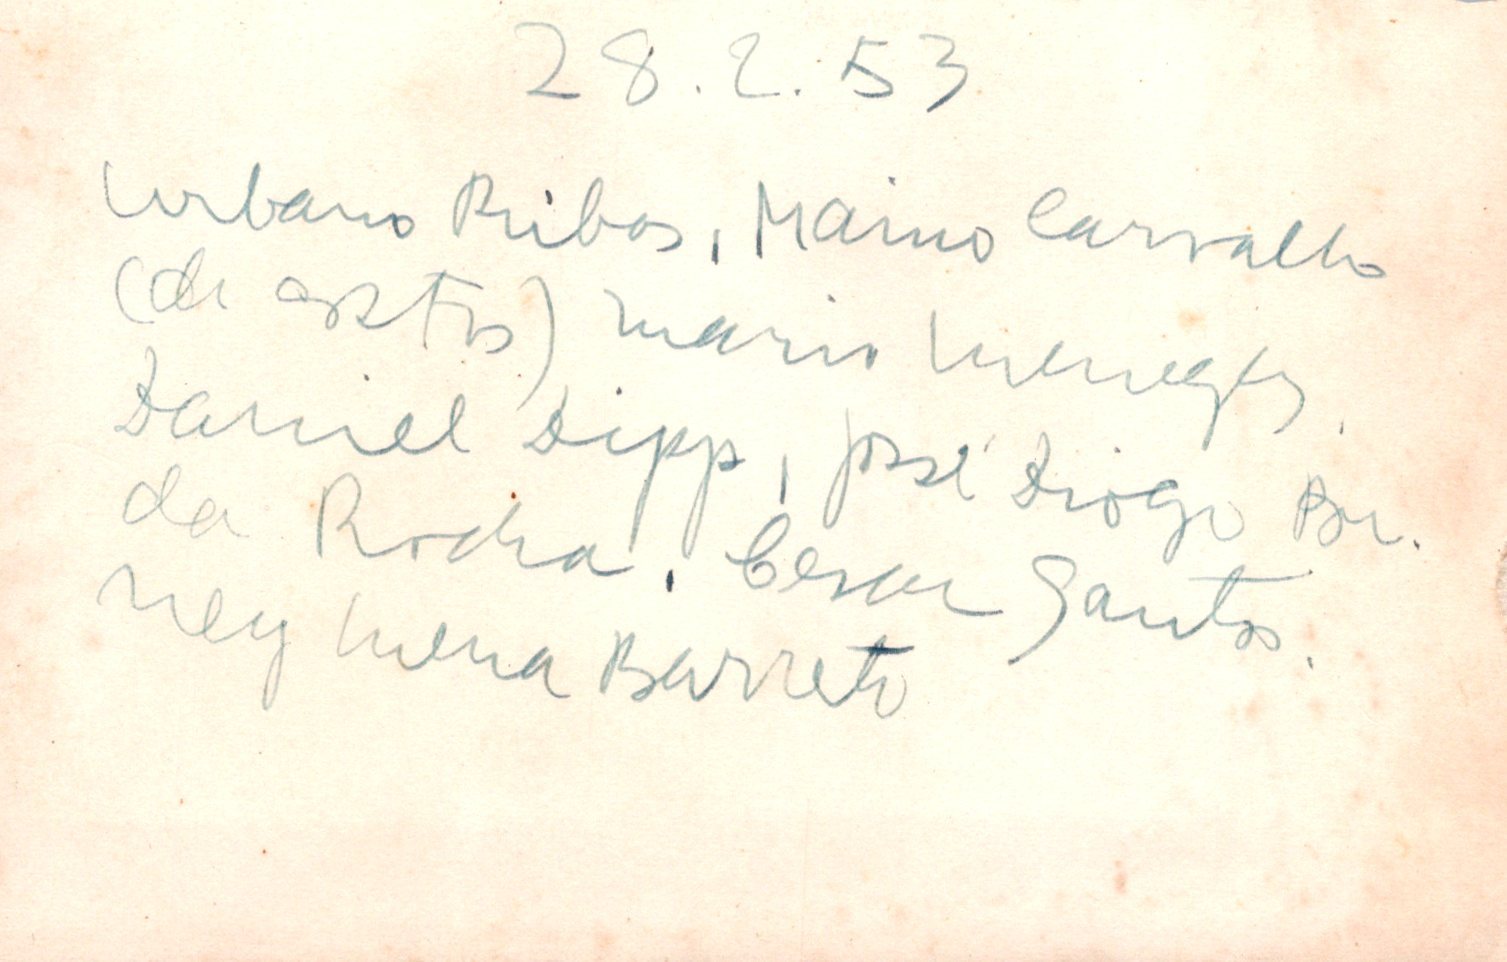 28.2.53
Urbano Ribas, Maino Carvalho
(de costas) Mario Menegaz,
Daniel Dipp, José Diogo Br.
da Rocha, Cesar Santos.
Ney Mena Barreto